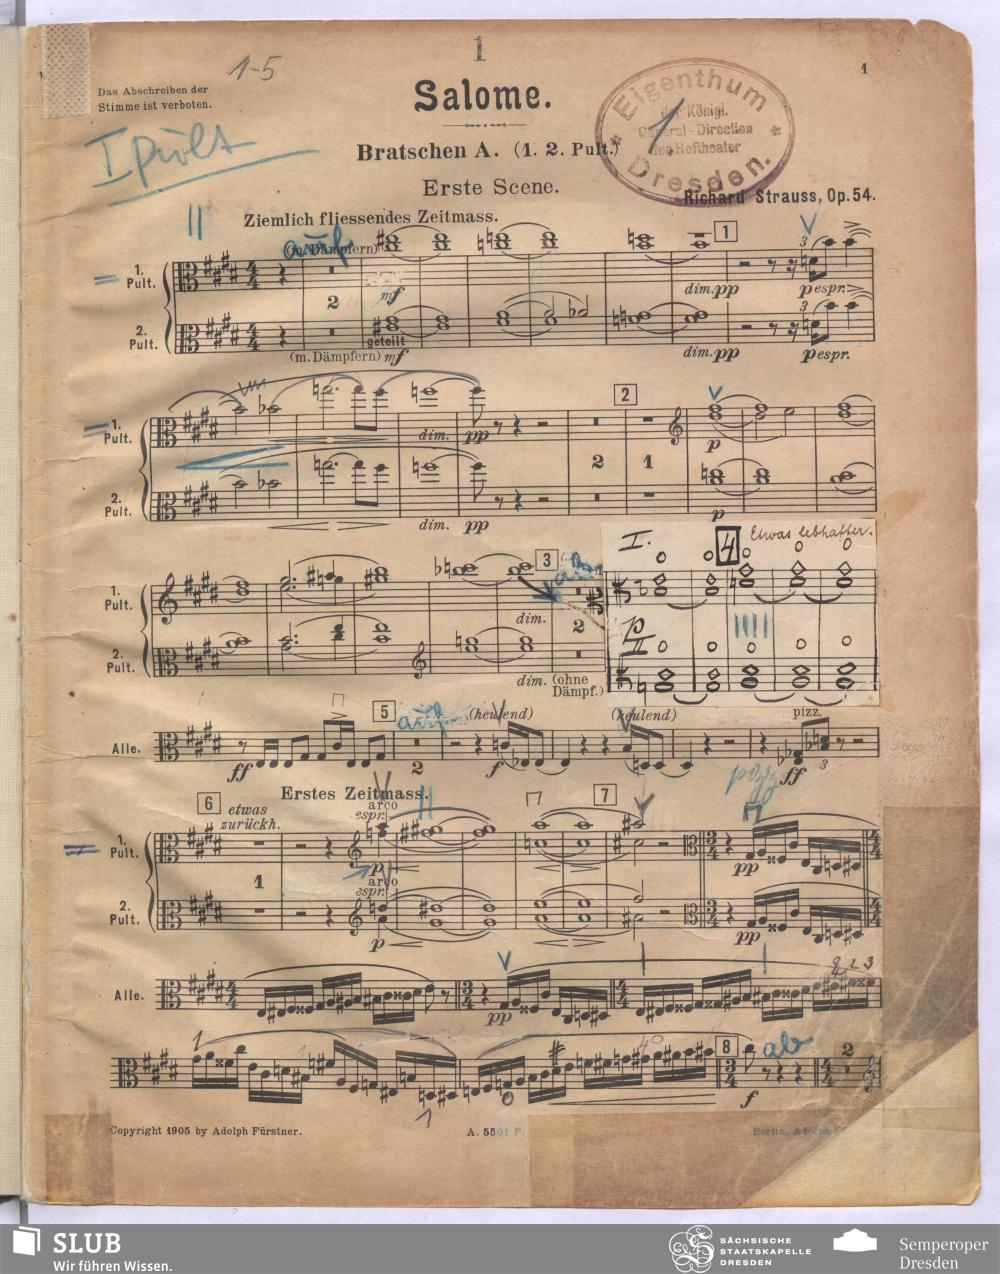 1
1
1-5
Das Abschreiben der
Stimme ist verboten.
Salome.
Eigenthum
der Königl.
General-Direction
der Hoftheater
Dresden.
1,
I pult
Bratschen A. (1. 2. Pult.)
Erste Scene.
Richard Strauss, Op. 54.
Ziemlich fliessendes Zeitmass.
auf
(m. Dämpfern)
1
3
1.
Pult.
2
mf
dim. pp
p espr.
3
2.
Pult.
geteilt
(m. Dämpfern) mf
dim. pp
p espr.
2
1.
Pult.
dim. pp
p
2
1
2.
Pult.
dim. pp
p
I.
4
Etwas lebhafter.
3
ab
1.
Pult.
dim.
2
II
2.
Pult.
dim. (ohne
Dämpf.)
5
auf
(heulend)
(heulend)
pizz.
Alle.
ff
2
f
ff
3
pizz
6
etwas
zurückh.
Erstes Zeitmass.
arco
espr.
7
1.
Pult.
p
pp
1
arco
espr.
2.
Pult.
p
pp
2 2 3
Alle.
pp
1
1
4
8
ab
2
1
f
Copyright 1905 by Adolph Fürstner.
A. 5501 F.
Berlin, Adolph
SLUB
Wir führen Wissen.
SÄCHSISCHE
STAATSKAPELLE
DRESDEN
Semperoper
Dresden